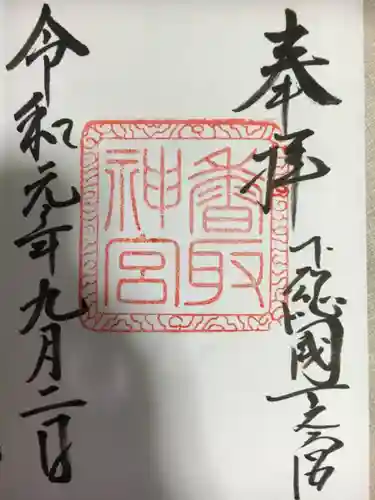 奉拝
下総國一之宮
香取
神宮
令和元年九月二日